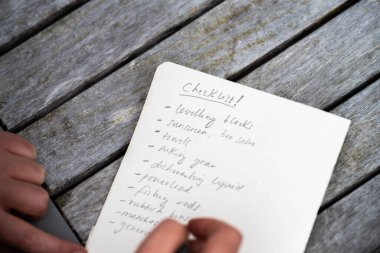 Checklist!
- levelling blocks
- sunscreen,
- towels
- hiking gear
- dishwashing liquid !
- powerlead
- fishing rods
- rubbish